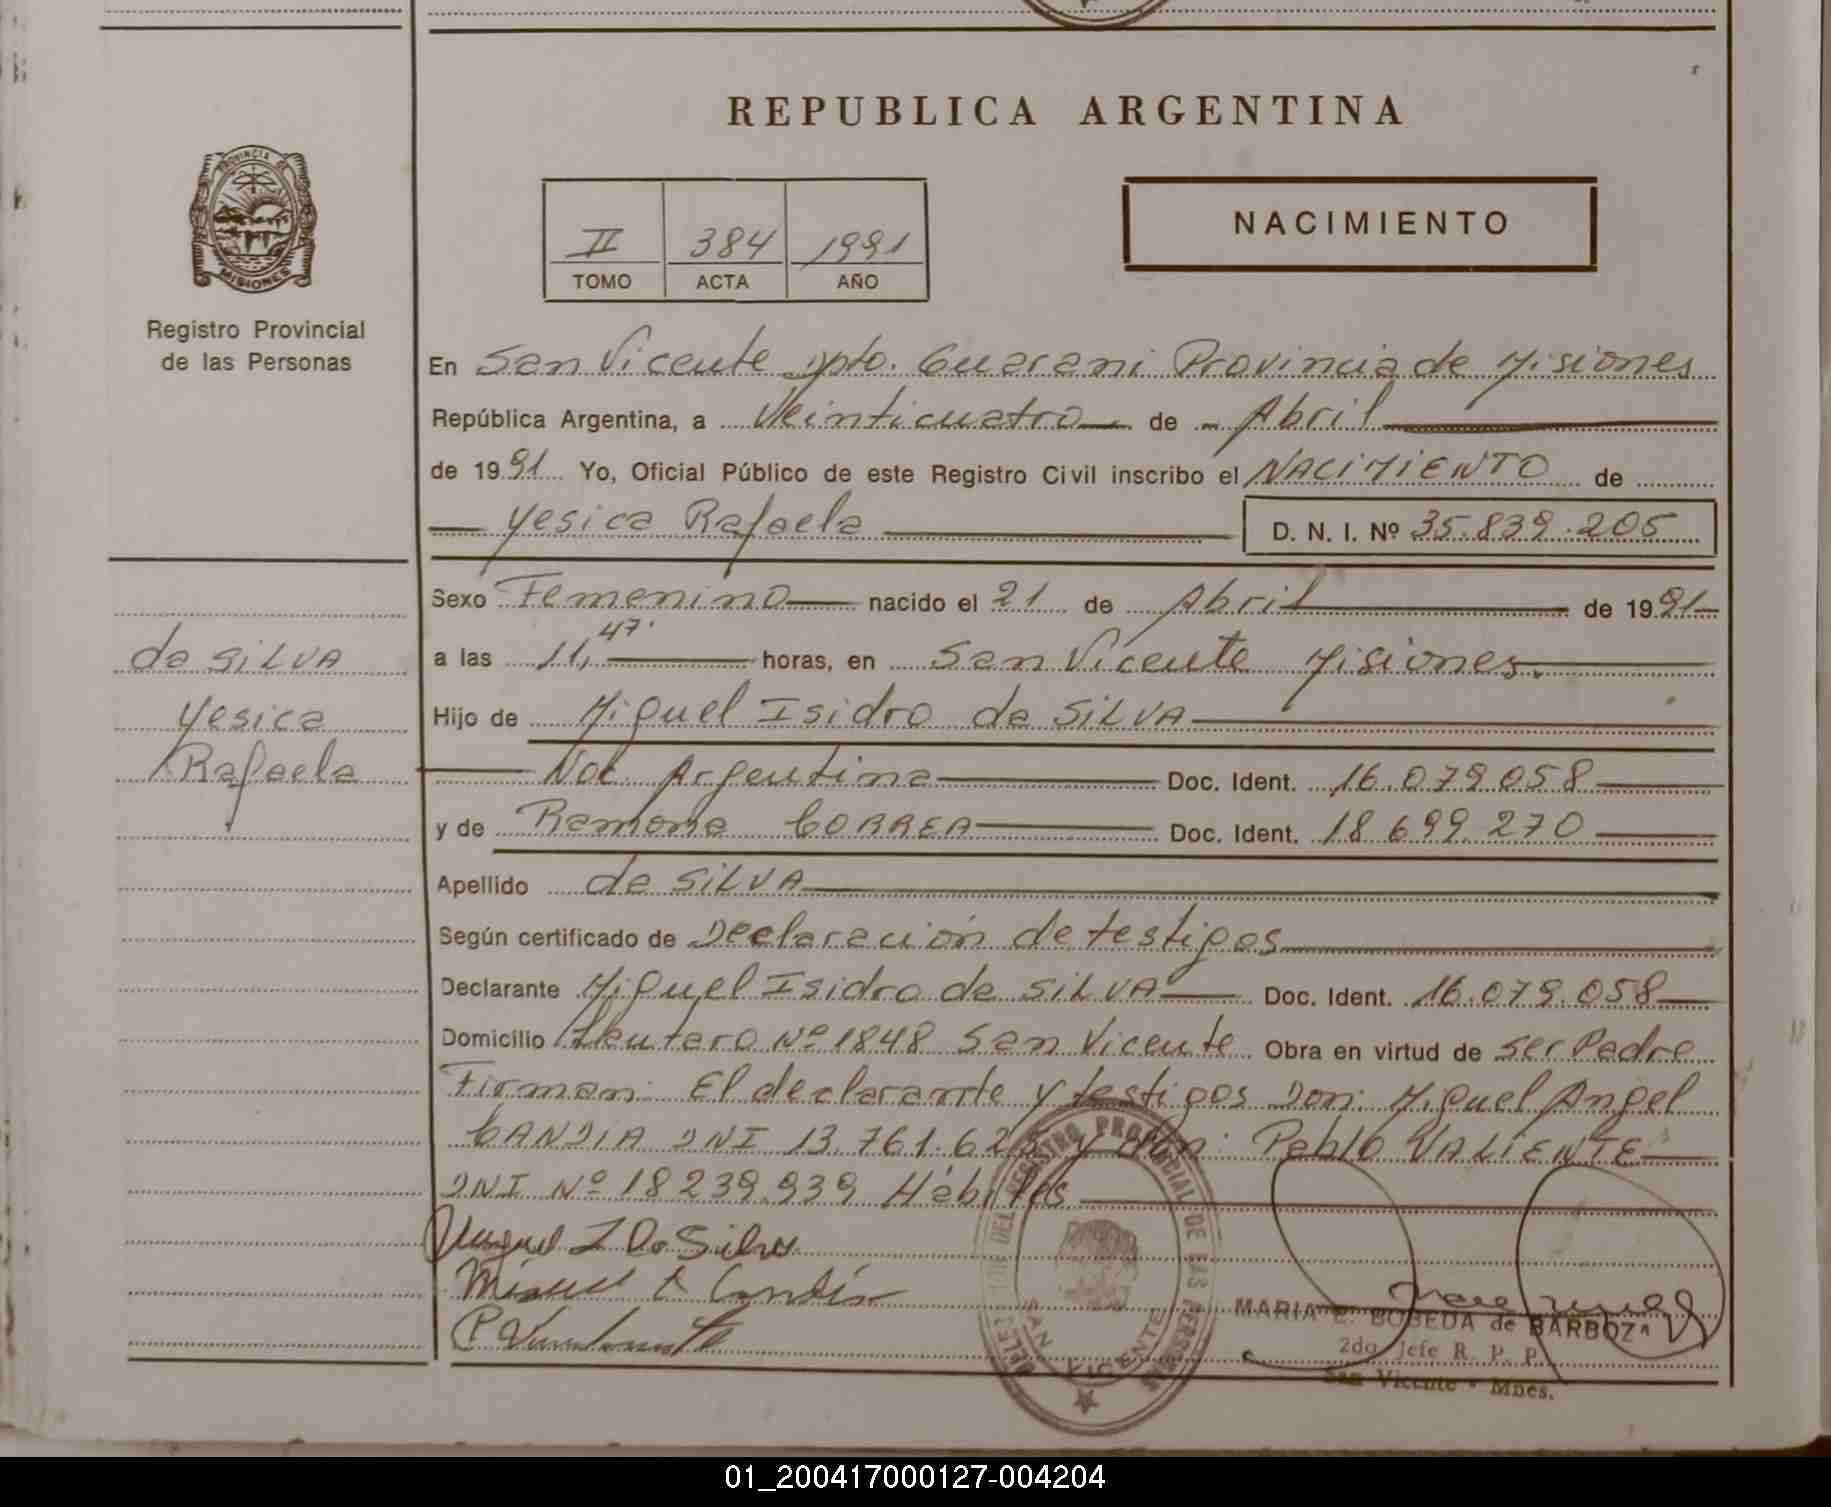 REPUBLICA ARGENTINA
PROVINCIA DE
MISIONES
Registro Provincial
de las Personas
II 384 1991
TOMO ACTA AÑO
NACIMIENTO
En San Vicente Dpto. Guarani Provincia de Misiones
República Argentina, a Veinticuatro de Abril
de 1991 Yo, Oficial Público de este Registro Civil inscribo el NACIMIENTO de
Yesica Rafaela D. N. I. Nº 35.839.205
Sexo Femenino nacido el 21 de Abril de 1991
a las 11,47' horas, en San Vicente Misiones.
Hijo de Miguel Isidro da SILVA
Nac. Argentina Doc. Ident. 16.079.058
y de Ramona CORREA Doc. Ident. 18.699.270
Apellido da SILVA
Según certificado de Declaración de testigos
Declarante Miguel Isidro da SILVA Doc. Ident. 16.079.058
Domicilio Nº 1848 San Vicente Obra en virtud de ser Padre
Firman: El declarante y testigos Don: Miguel Angel
CANDIA DNI 13.761.62 y Don: Pablo VALIENTE
DNI Nº 18239.939 Hábiles
da SILVA
Yesica
Rafaela
Miguel I Da Silva
Miguel A Candia
DEL REGISTRO PROVINCIAL DE LAS PERSONAS
SAN VICENTE
MARIA E. BOBEDA de BARBOZA
2do Jefe R. P. P.
San Vicente - Mnes.
01_200417000127-004204